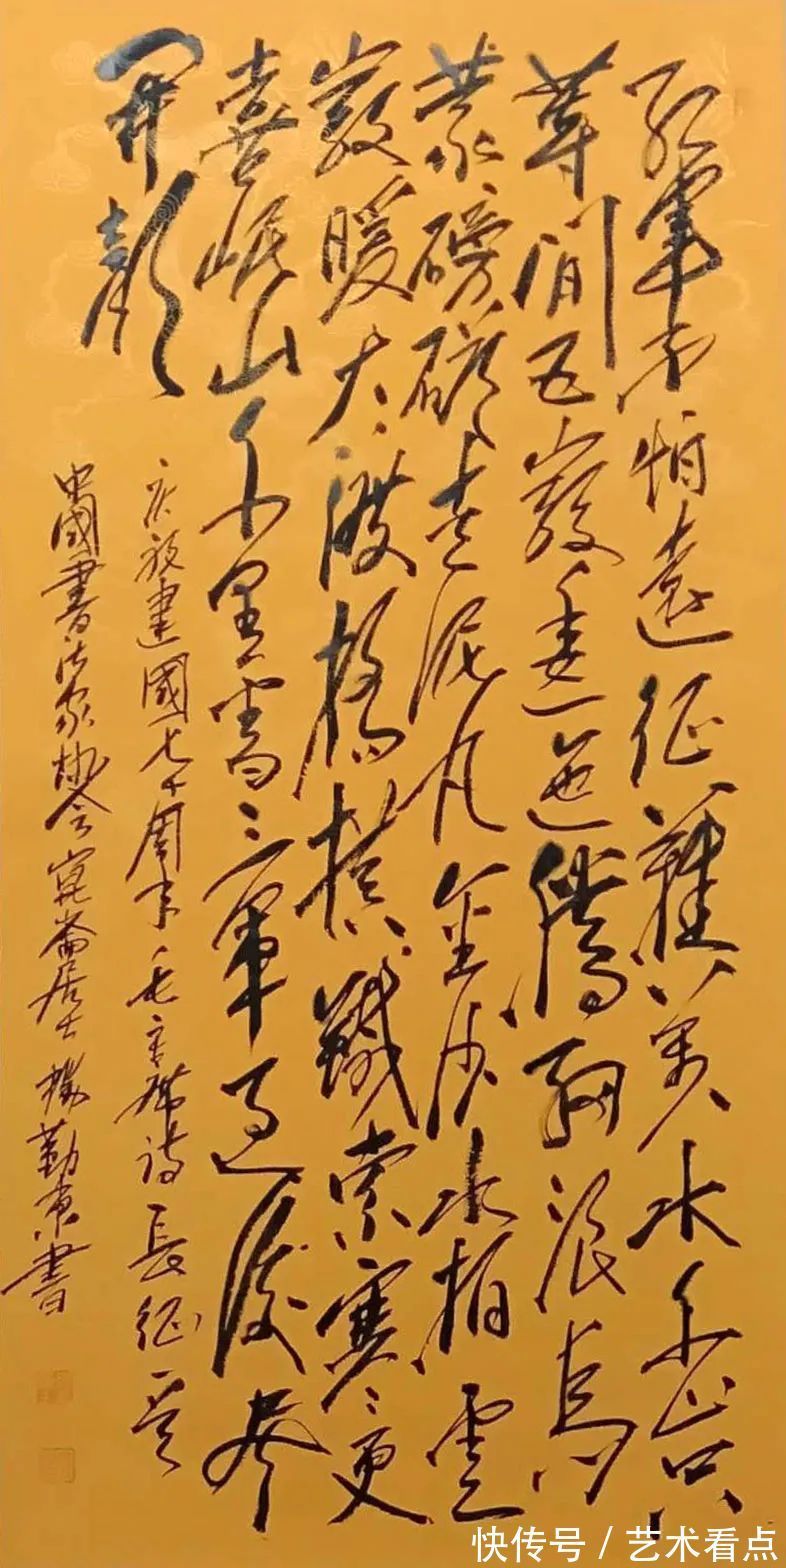 紅軍不怕遠征難萬水千山只
等閒五嶺逶迤騰細浪烏
蒙磅礴走泥丸金沙水拍雲
巖暖大渡橋橫鐵索寒更
喜岷山千里雪三軍過後盡
開顏
庆祝建國七十周年毛主席诗長征一首
中國書法家协会崑崙居士勤書
快传号 / 艺术看点